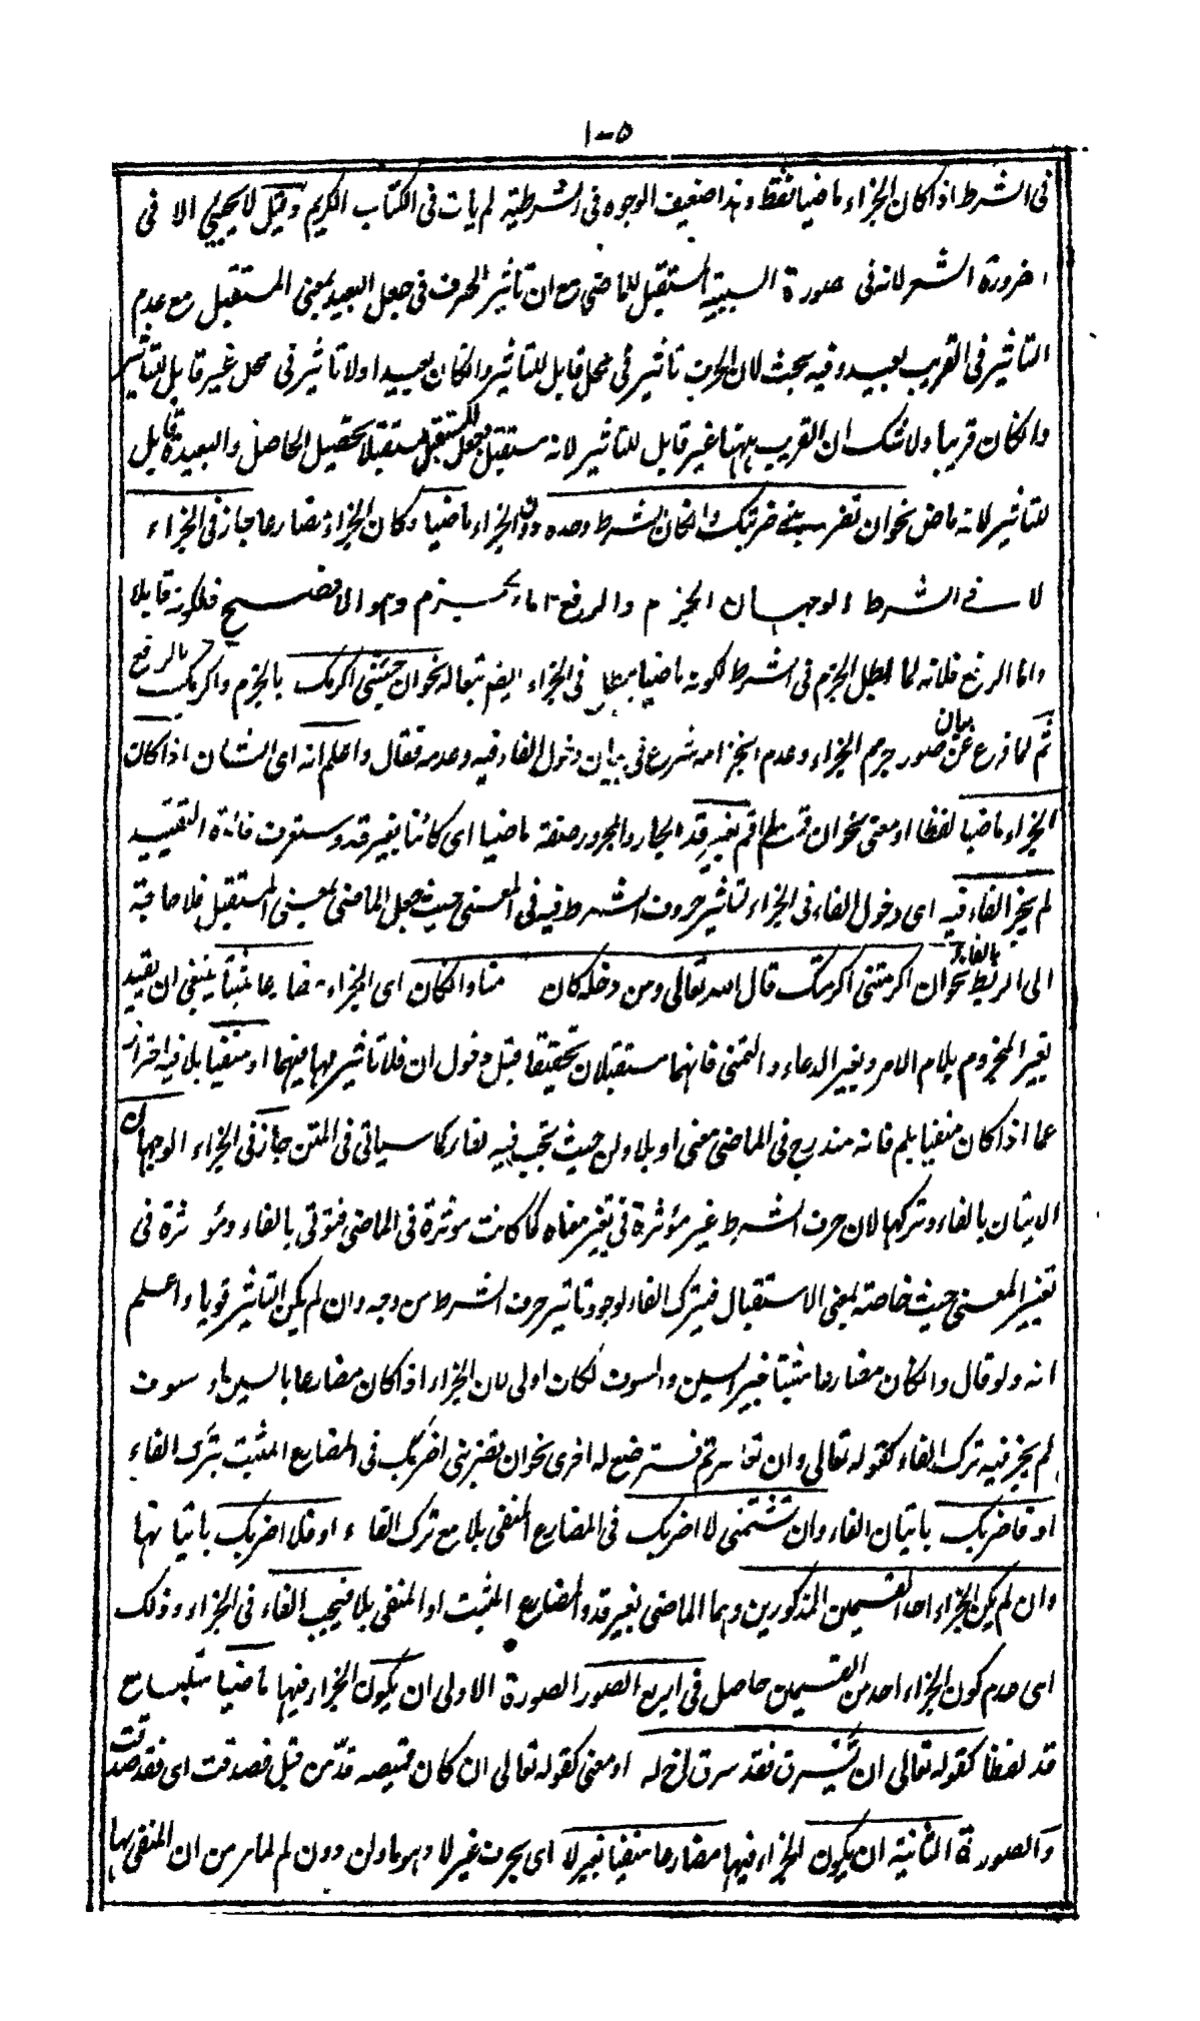 ١٠٥
فى الشرط اذا كان الجزاء ماضيا فقط وهذا ضعيف الوجوه فى الشرطية لم يات فى الكتاب الكريم وقيل لا يجيئ الا فى
ضرورة الشعر لانه فى صورة السببية المستقبل للماضى مع ان تاثير الحرف فى جعل البعيد بمعنى المستقبل مع عدم
التاثير فى القريب بعيد وفيه بحث لان الحرف تاثير فى محل قابل للتاثير وان كان بعيدا ولا تاثير فى محل غير قابل للتاثير
وان كان قريبا ولا شك ان القريب ههنا غير قابل للتاثير لانه مستقبل وجعل المستقبل مستقبلا تحصيل الحاصل والبعيد قابل
للتاثير لانه ماض نحو ان تضربنى ضربتك وان كان الشرط وحده دون الجزاء ماضيا وكان الجزاء مضارعا جاز فى الجزاء
لا فى الشرط الوجهان الجزم والرفع اما الجزم وهو الافصح فلكونه قابلا
واما الرفع فلانه لما بطل الجزم فى الشرط لكونه ماضيا بطل فى الجزاء ايضا تبعا له نحو ان جئتنى اكرمك بالجزم واكرمك بالرفع
ثم لما فرع عن بيان صور جزم الجزاء وعدم انجزامه شرع فى بيان دخول الفاء فيه وعدمه فقال واعلم انه اى الشان اذا كان
الجزاء ماضيا لفظا او معنى نحو ان قمت لم اقم بغير قد الجار والمجرور صفة ماضيا اى كائنا بغير قد وستعرف فائدة التقييد
لم يجز الفاء فيه اى دخول الفاء فى الجزاء لتاثير حروف الشرط فيه فى المعنى حيث جعل الماضى بمعنى المستقبل فلا حاجة
الى الربط بالفاء نحو ان اكرمتنى اكرمتك قال الله تعالى ومن دخله كان منا وان كان اى الجزاء مضارعا مثبتا ينبغى ان يقيد
بغير المجزوم بلام الامر وبغير الدعاء والتمنى فانهما مستقبلان تحقيقا قبل دخول ان فلا تاثير لها فيهما او منفيا بلا فيه احتراز
عما اذا كان منفيا بلم فانه مندرج فى الماضى معنى او بلا ولن حيث تجب فيه لفاء كما سياتى فى المتن جاز فى الجزاء الوجهان
الاتيان بالفاء وتركها لان حرف الشرط غير مؤثرة فى تغير معناه كما كانت موثرة فى الماضى فتوتى بالفاء ومؤثرة فى
تغيير المعنى حيث خاصته لمعنى الاستقبال فيترك الفاء لوجود تاثير حرف الشرط من وجه وان لم يكن التاثير قويا واعلم
انه ولو قال وان كان مضارعا مثبتا بغير السين والسوف لكان اولى لان الجزاء اذا كان مضارعا بالسين او سوف
لم يجز فيه ترك الفاء كقوله تعالى وان تعاسرتم فسترضع له اخرى نحو ان تضربنى اضربك فى المضارع المثبت بترك الفاء
او فاضربك باتيان الفاء وان تشتمنى لا اضربك فى المضارع المنفى بلا مع ترك الفاء او فلا اضربك باتيانها
وان لم يكن الجزاء احد القسمين المذكورين وهما الماضى بغير قد والمضارع المثبت او المنفى بلا فيجب الفاء فى الجزاء وذلك
اى عدم كون الجزاء احد من القسمين حاصل فى اربع الصور الصورة الاولى ان يكون الجزاء فيها ماضيا متلبسا مع
قد لفظا كقوله تعالى ان يسرق فقد سرق اخ له او معنى كقوله تعالى ان كان قميصه قدّ من قبل فصدقت اى فقد صدقت
والصورة الثانية ان يكون الجزاء فيها مضارعا منفيا بغير لا اى بحرف غير لا وهو ما ولن دون لم لما مر من ان المنفى بها